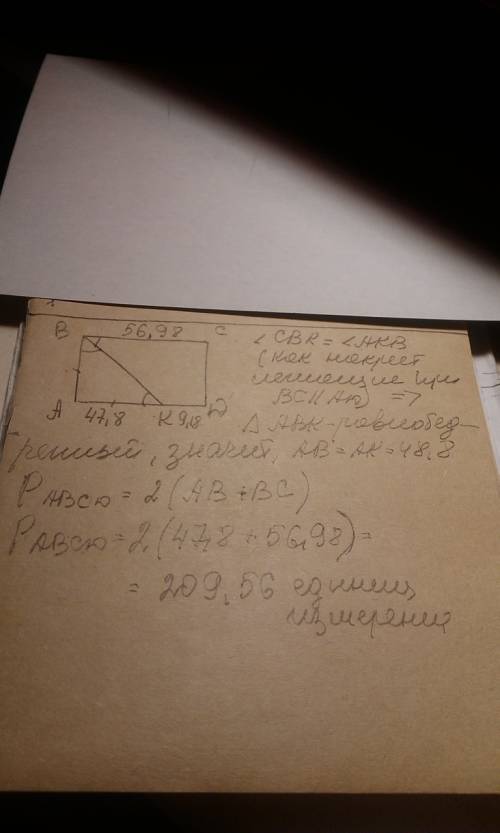 B 56,98 C
A 47,8 K 9,18 D
∠CBK = ∠AKB
(как накрест
лежащие при
BC∥AD) =>
△ ABK - равнобед-
ренный, значит, AB = AK = 48,8
P ABCD = 2(AB + BC)
P ABCD = 2(47,8 + 56,98) =
= 209,56 единиц
измерения